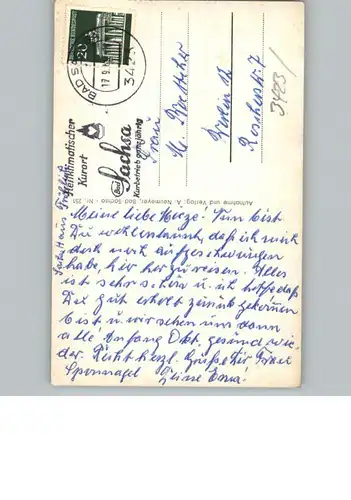 20
BAD SA
17.9.6
3423
Heilklimatischer
Kurort
Bad Sachsa
Kurbetrieb ganzjährig
Aufnahme und Verlag: A. Neumeyer, Bad Sachsa - Nr. 251
3423/
Frau
M.
Berlin 12
Meine liebe Herze. Nun bist
Du wohl erstaunt, daß ich mich
doch noch aufgeschwungen
habe, hier her zu reisen. Alles
ist sehr schön u. ich hoffe daß
Du gut erholt zurück gekommen
bist u. wir sehen uns dann
alle Anfang Okt. gesund wie-
der. Recht herzl. Grüße Dir Frau
Spornagel Deine Erna!